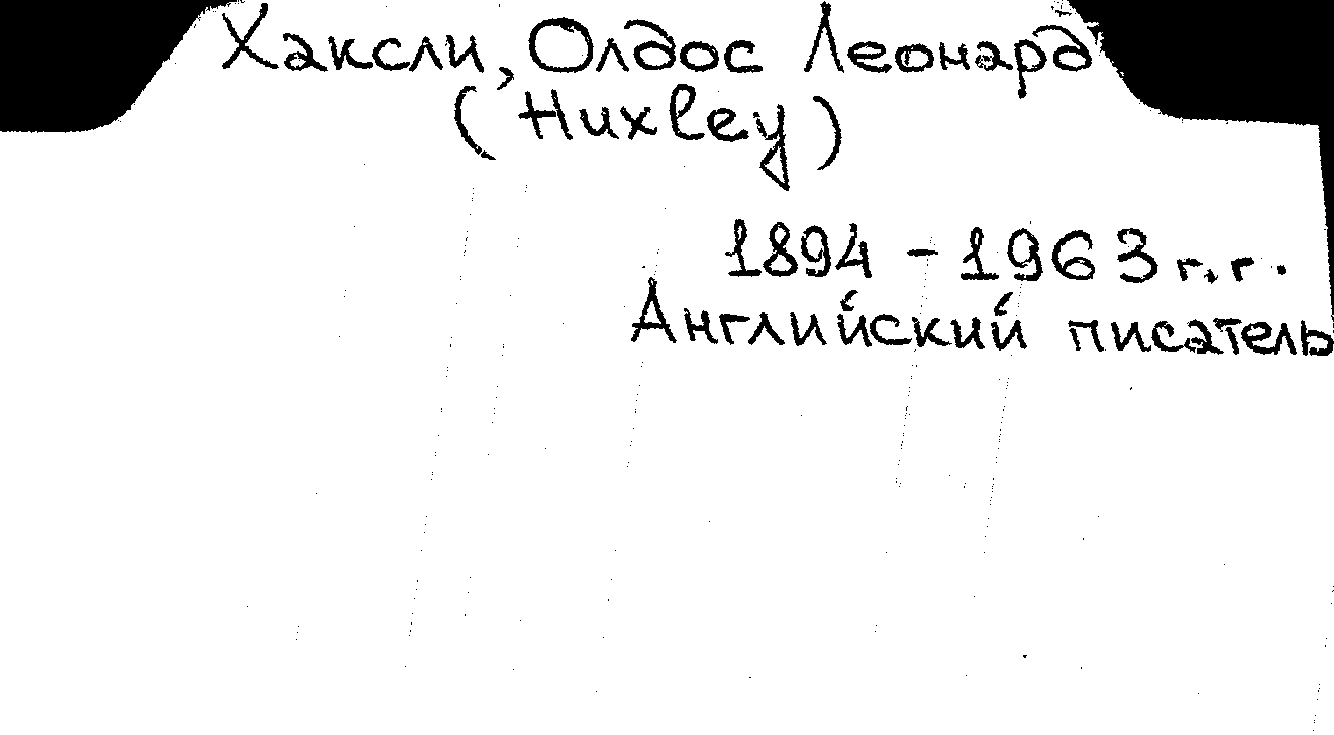 Хаксли, Олдос Леонард
(Huxley)
1894 - 1963 г.г.
Английский писатель